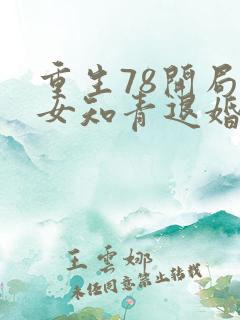 重生78开局
女知青退婚
王云娜
未经同意禁止转载